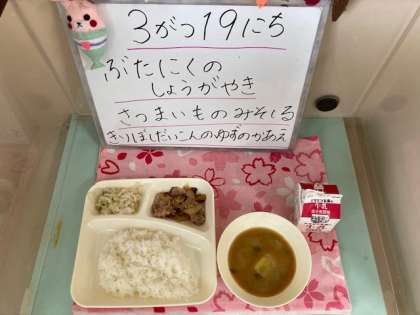 3がつ19にち
ぶたにくの
しょうがやき
さつまいものみそしる
きりぼしだいこんのゆずのかあえ
牛乳